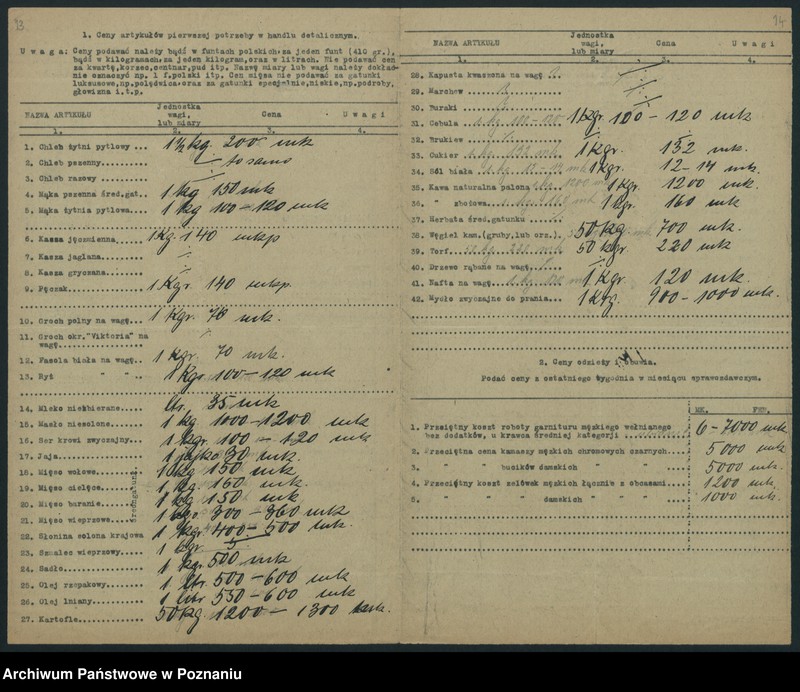 93
1. Ceny artykułów pierwszej potrzeby w handlu detalicznym.
U w a g a: Ceny podawać należy bądź w funtach polskich. za jeden funt (410 gr.),
bądź w kilogramach. za jeden kilogram, oraz w litrach. Nie podawać cen
za kwartę, korzec, centnar, pud itp. Nazwę miary lub wagi należy dokład-
nie oznaczyć np. 1 f. polski itp. Cen mięsa nie podawać za gatunki
luksusowe, np. polędwica. oraz za gatunki specjalnie, niskie, np. podroby,
głowizna i.t.p.
NAZWA ARTYKUŁU Jednostka wagi, lub miary Cena U w a g i
1. 2. 3. 4.
1. Chleb żytni pytlowy ... 1½ kg. 200 mk
2. Chleb pszenny.......... — to samo
3. Chleb razowy ..........
4. Mąka pszenna śred.gat.. 1 kg 150 mk
5. Mąka żytnia pytlowa.... 1 kg 100-120 mk
6. Kasza jęczmienna..... 1 Kg. 140 mkp
7. Kasza jaglana.........
8. Kasza gryczana........
9. Pęczak................ 1 Kgr. 140 mkp.
10. Groch polny na wagę... 1 Kgr. 76 mk.
11. Groch okr. "Viktoria" na
wagę..................
12. Fasola biała na wagę.. 1 Kgr. 70 mk.
13. Ryż " " .. 1 Kgr 100-120 mk
14. Mleko niezbierane..... ltr. 35 mk
15. Masło niesolone....... 1 kg 1000-1200 mk
16. Ser krowi zwyczajny... 1 kgr. 100 - 120 mk
17. Jaja.................. 1 jajko 30 mk.
18. Mięso wołowe.......... 1 kg 150 mk
19. Mięso cielęce......... 1 kg. 160 mk.
20. Mięso baranie......... 1 kg 150 mk
21. Mięso wieprzowe....... 300 - 360 mk
22. Słonina solona krajowa 1 kgr. 400 - 500 mk.
23. Szmalec wieprzowy..... 1 kgr.
24. Sadło................. 1 kgr. 500 mk
25. Olej rzepakowy........ 1 ltr. 500-600 mk
26. Olej lniany........... 1 litr 550-600 mk
27. Kartofle.............. 50 kg. 1200 - 1300 mk.
94
NAZWA ARTYKUŁU Jednostka wagi, lub miary Cena U w a g i
1. 2. 3. 4.
28. Kapusta kwaszona na wagę
29. Marchew
30. Buraki
31. Cebula 1 kgr 100 - 120 mk
32. Brukiew
33. Cukier 1 kgr. 132 mk.
34. Sól biała 1 kgr. 12-14 mk.
35. Kawa naturalna palona 1 kgr. 1200 mk.
36. " zbożowa 1 kgr. 160 mk
37. Herbata śred.gatunku
38. Węgiel kam.(gruby, lub orz.) 50 kg. 700 mk.
39. Torf 50 kgr. 220 mk
40. Drzewo rąbane na wagę
41. Nafta na wagę 1 Kgr. 120 mk.
42. Mydło zwyczajne do prania... 1 Kg. 900-1000 mk.
2. Ceny odzieży i obuwia.
Podać ceny z ostatniego tygodnia w miesiącu sprawozdawczym.
MK. FEN.
1. Przeciętny koszt roboty garnituru męzkiego wełnianego
bez dodatków, u krawca średniej kategorji 6-7000 mk
2. Przeciętna cena kamaszy męzkich chromowych czarnych.... 5000 mk
3. " " bucików damskich " " 5000 mk.
4. Przeciętny koszt zelówek męzkich łącznie z obcasami.... 1200 mk.
5. " " " damskich " " " 1000 mk.
Archiwum Państwowe w Poznaniu